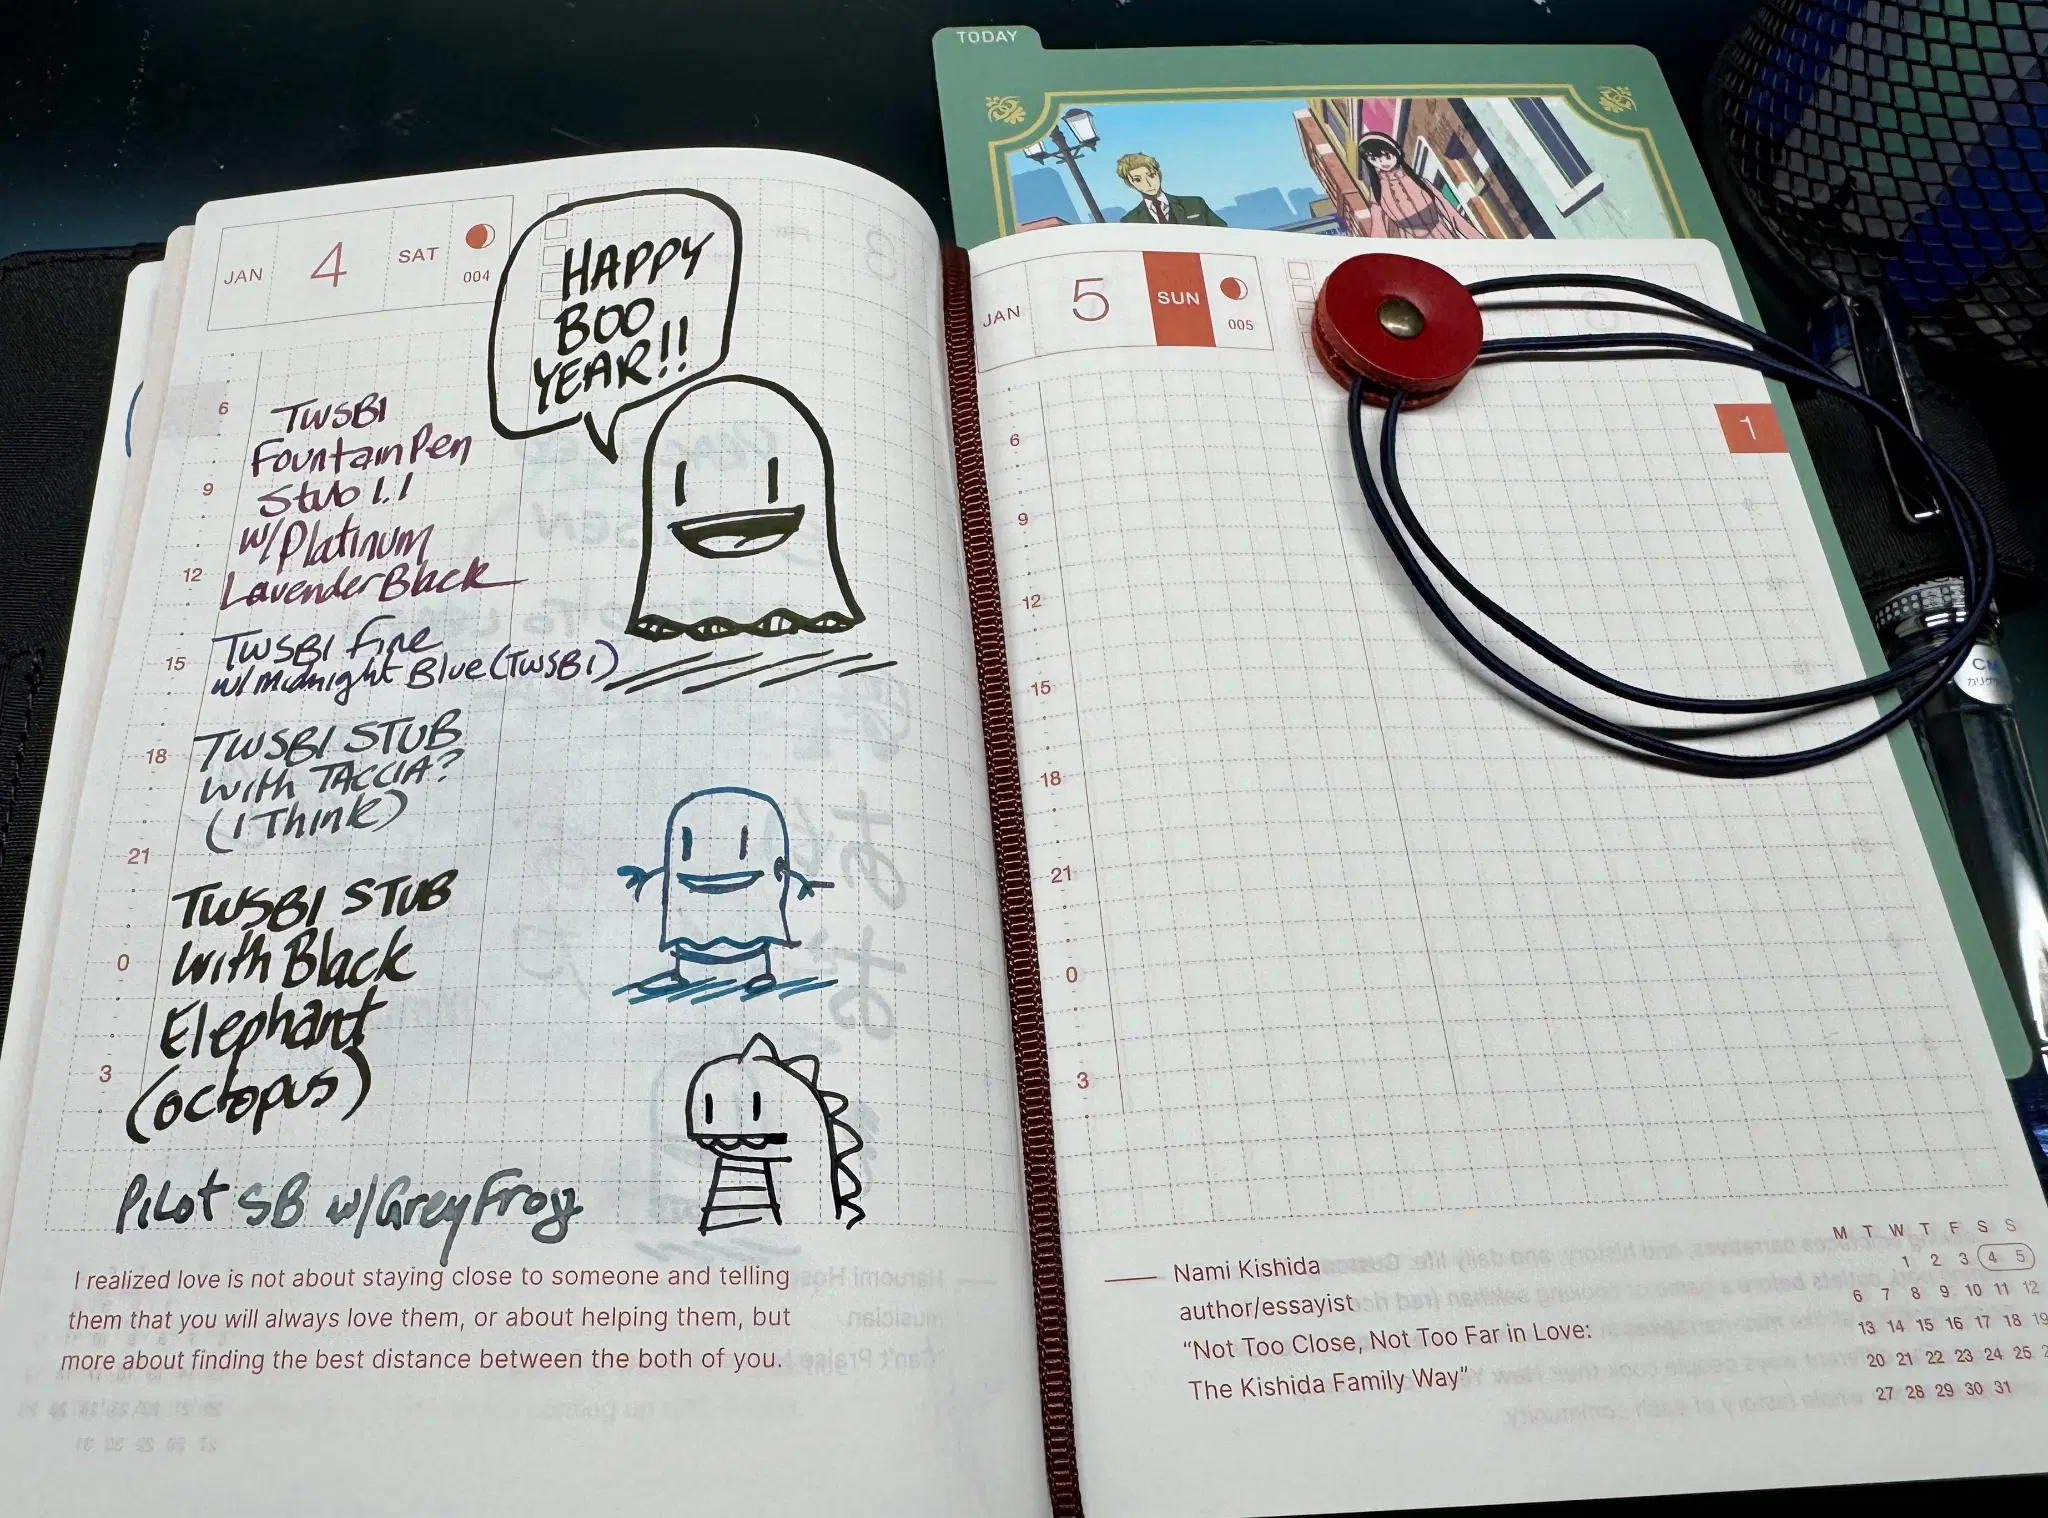 TODAY
JAN 4 SAT 004
HAPPY
BOO
YEAR!!
6
9
12
15
18
21
0
3
TWSBI
Fountain Pen
Stub 1.1
w/Platinum
Lavender Black
TWSBI Fine
w/ Midnight Blue (TWSBI)
TWSBI STUB
with TACCIA?
(I Think)
TWSBI STUB
with Black
Elephant
(octopus)
PiLot SB w/Grey Frog
I realized love is not about staying close to someone and telling
them that you will always love them, or about helping them, but
more about finding the best distance between the both of you.
JAN 5 SUN 005
1
6
9
12
15
18
21
0
3
Nami Kishida
author/essayist
"Not Too Close, Not Too Far in Love:
The Kishida Family Way"
M T W T F S S
1 2 3 4 5
6 7 8 9 10 11 12
13 14 15 16 17 18 19
20 21 22 23 24 25
27 28 29 30 31